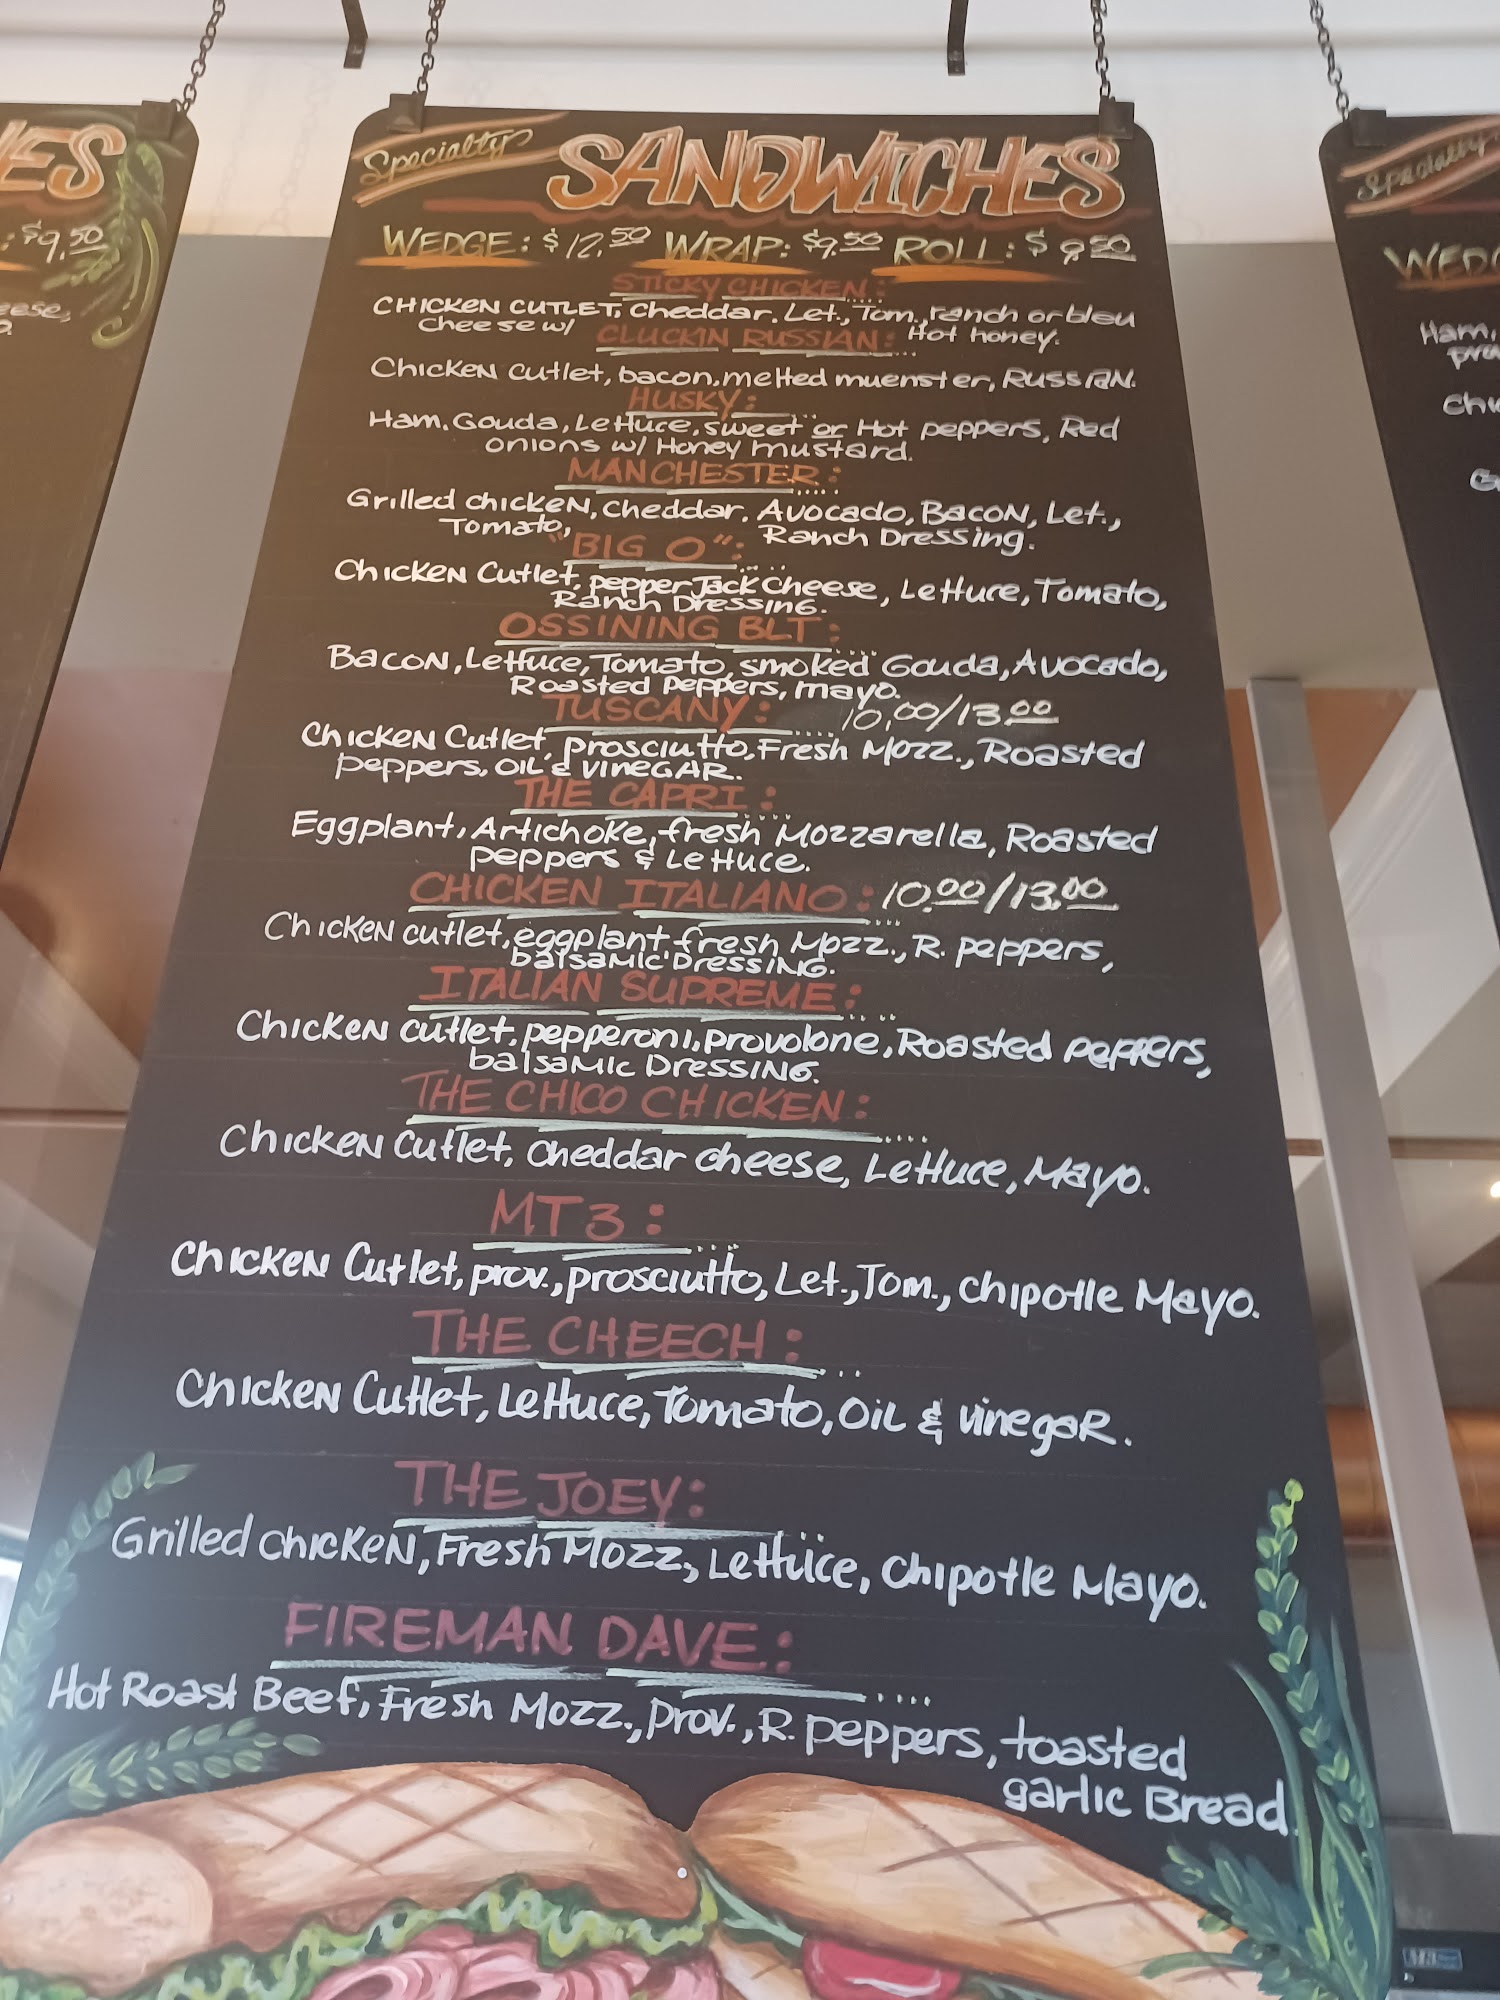 ES
: $9.50
eese,
Specialty SANDWICHES
WEDGE: $12.50 WRAP: $9.50 ROLL: $9.50
STICKY CHICKEN:
CHICKEN CUTLET, Cheddar. Let., Tom., ranch or bleu
cheese w/ Hot honey.
CLUCKIN RUSSIAN:
Chicken cutlet, bacon, melted muenster, RUSSIAN.
HUSKY:
Ham. Gouda, Lettuce, sweet or Hot peppers, Red
onions w/ Honey mustard.
MANCHESTER:
Grilled chicken, cheddar. Avocado, Bacon, Let.,
Tomato, Ranch Dressing.
"BIG O":
Chicken Cutlet, pepper Jack cheese, Lettuce, Tomato,
Ranch Dressing.
OSSINING BLT:
Bacon, Lettuce, Tomato, smoked Gouda, Avocado,
Roasted peppers, mayo.
TUSCANY: 10.00/13.00
Chicken Cutlet, prosciutto, Fresh Mozz., Roasted
peppers, OIL & VINEGAR.
THE CAPRI:
Eggplant, Artichoke, fresh Mozzarella, Roasted
peppers & Lettuce.
CHICKEN ITALIANO: 10.00/13.00
Chicken cutlet, eggplant, fresh Mozz., R. peppers,
balsamic Dressing.
ITALIAN SUPREME:
Chicken cutlet, pepperoni, provolone, Roasted peppers,
balsamic Dressing.
THE CHICO CHICKEN:
Chicken Cutlet, cheddar cheese, Lettuce, Mayo.
MT3:
Chicken Cutlet, prov., prosciutto, Let., Tom., chipotle Mayo.
THE CHEECH:
Chicken Cutlet, Lettuce, Tomato, OIL & vinegar.
THE JOEY:
Grilled chicken, Fresh Mozz, Lettuce, Chipotle Mayo.
FIREMAN DAVE:
Hot Roast Beef, Fresh Mozz., prov., R. peppers, toasted
garlic Bread.
Specialty
WEDG
Ham,
pro
Chi